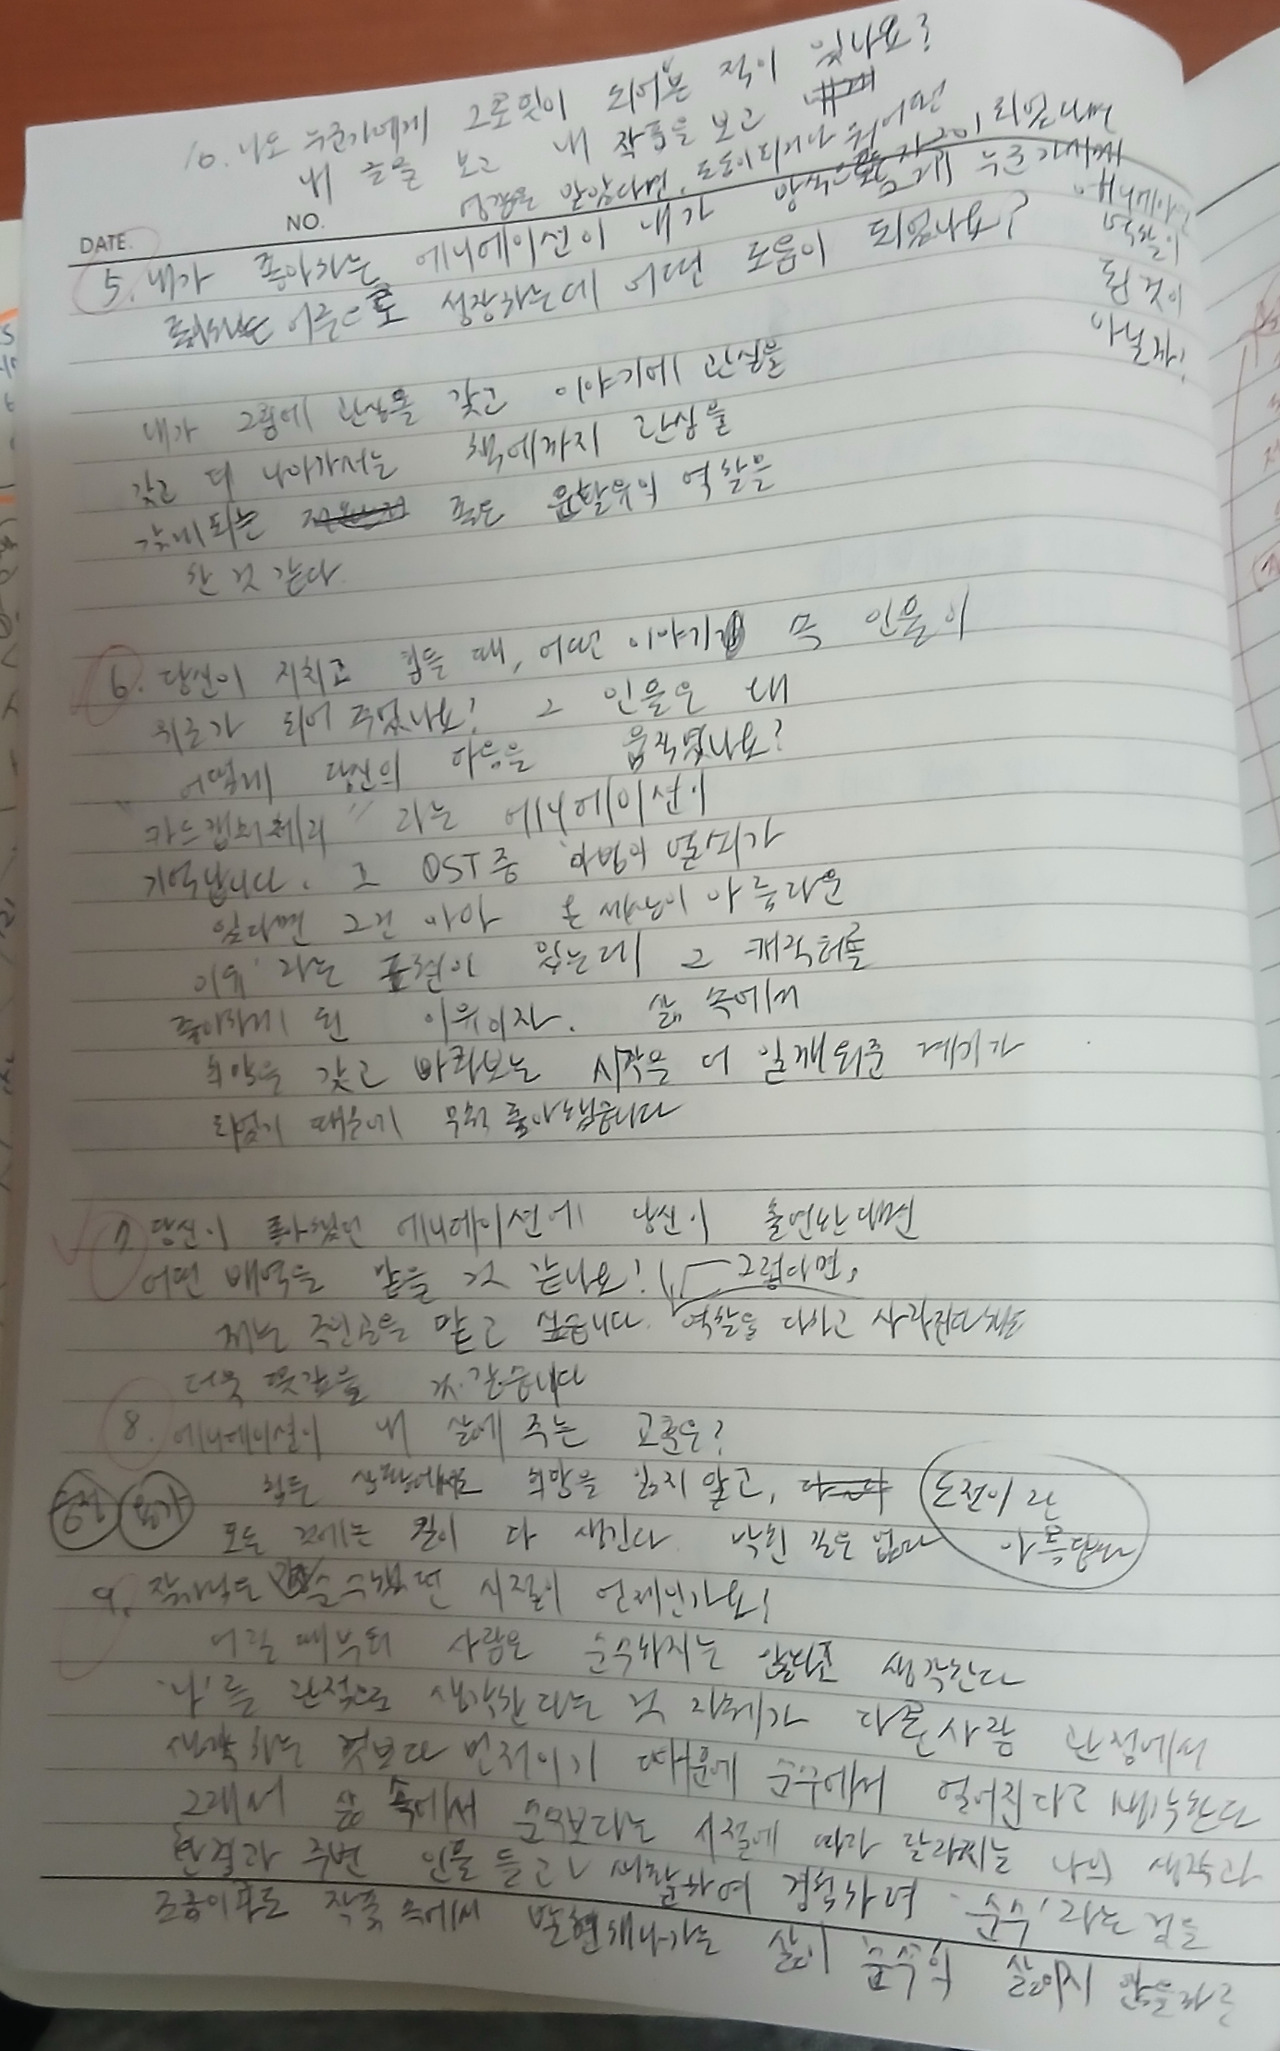 10. 나도 누군가에게 그로잉이 되어본 적이 있나요?
내 글을 보고 내 작품을 보고
영감을 받았다면, 도움이 되거나 뭐 어떤
자극이 되었다면
그게 누군가에게
애니메이션
역할이
된 것이
아닐까!
DATE. NO.
5. 내가 좋아하는 에니메이션이 내가
어른으로 성장하는데 어떤 도움이 되었나요?
내가 그림에 관심을 갖고 이야기에 관심을
갖고 더 나아가서는 책에까지 관심을
갖게되는 좋은 윤활유의 역할을
한 것 같다.
6. 당신이 지치고 힘들 때, 어떤 이야기 속 인물이
위로가 되어 주었나요! 그 인물은 왜
어떻게 당신의 마음을 움직였나요?
"카드캡터체리" 라는 에니메이션이
기억납니다. 그 OST중 '마법의 열쇠가
있다면 그건 아마 온 세상이 아름다운
이유' 라는 표현이 있는데 그 캐릭터를
좋아하게 된 이유이자. 삶 속에서
희망을 갖고 바라보는 시작을 더 일깨워준 계기가
되었기 때문에 무척 좋아했습니다
7 당신이 좋아했던 에니메이션에 당신이 출연한다면
어떤 배역을 맡을 것 같나요! 그렇다면,
저는 주인공을 맡고 싶습니다. 역할을 다하고 사라진다해도
더욱 뜻깊을 것 같습니다
8. 에니메이션이 내 삶에 주는 교훈은?
힘든 상황에서도 희망을 잃지 않고, 도전이란
모든 것에는 길이 다 생긴다. 막힌 길은 없다 아름답다
긍정 용기
9. 작가님도 순수했던 시절이 언제인가요!
어릴 때부터 사람은 순수하지는 않다고 생각한다
'나'를 관점으로 생각한다는 것 자체가 다른사람 관점에서
생각하는 것보다 먼저이기 때문에 순수에서 멀어진다고 생각한다
그래서 삶 속에서 순수보다는 시절에 따라 달라지는 나의 생각과
환경과 주변 인물들고 생활하며 경험하며 '순수'라는 것을
조금이라도 작품 속에서 발현해나가는 삶이 순수의 삶이지 않을까